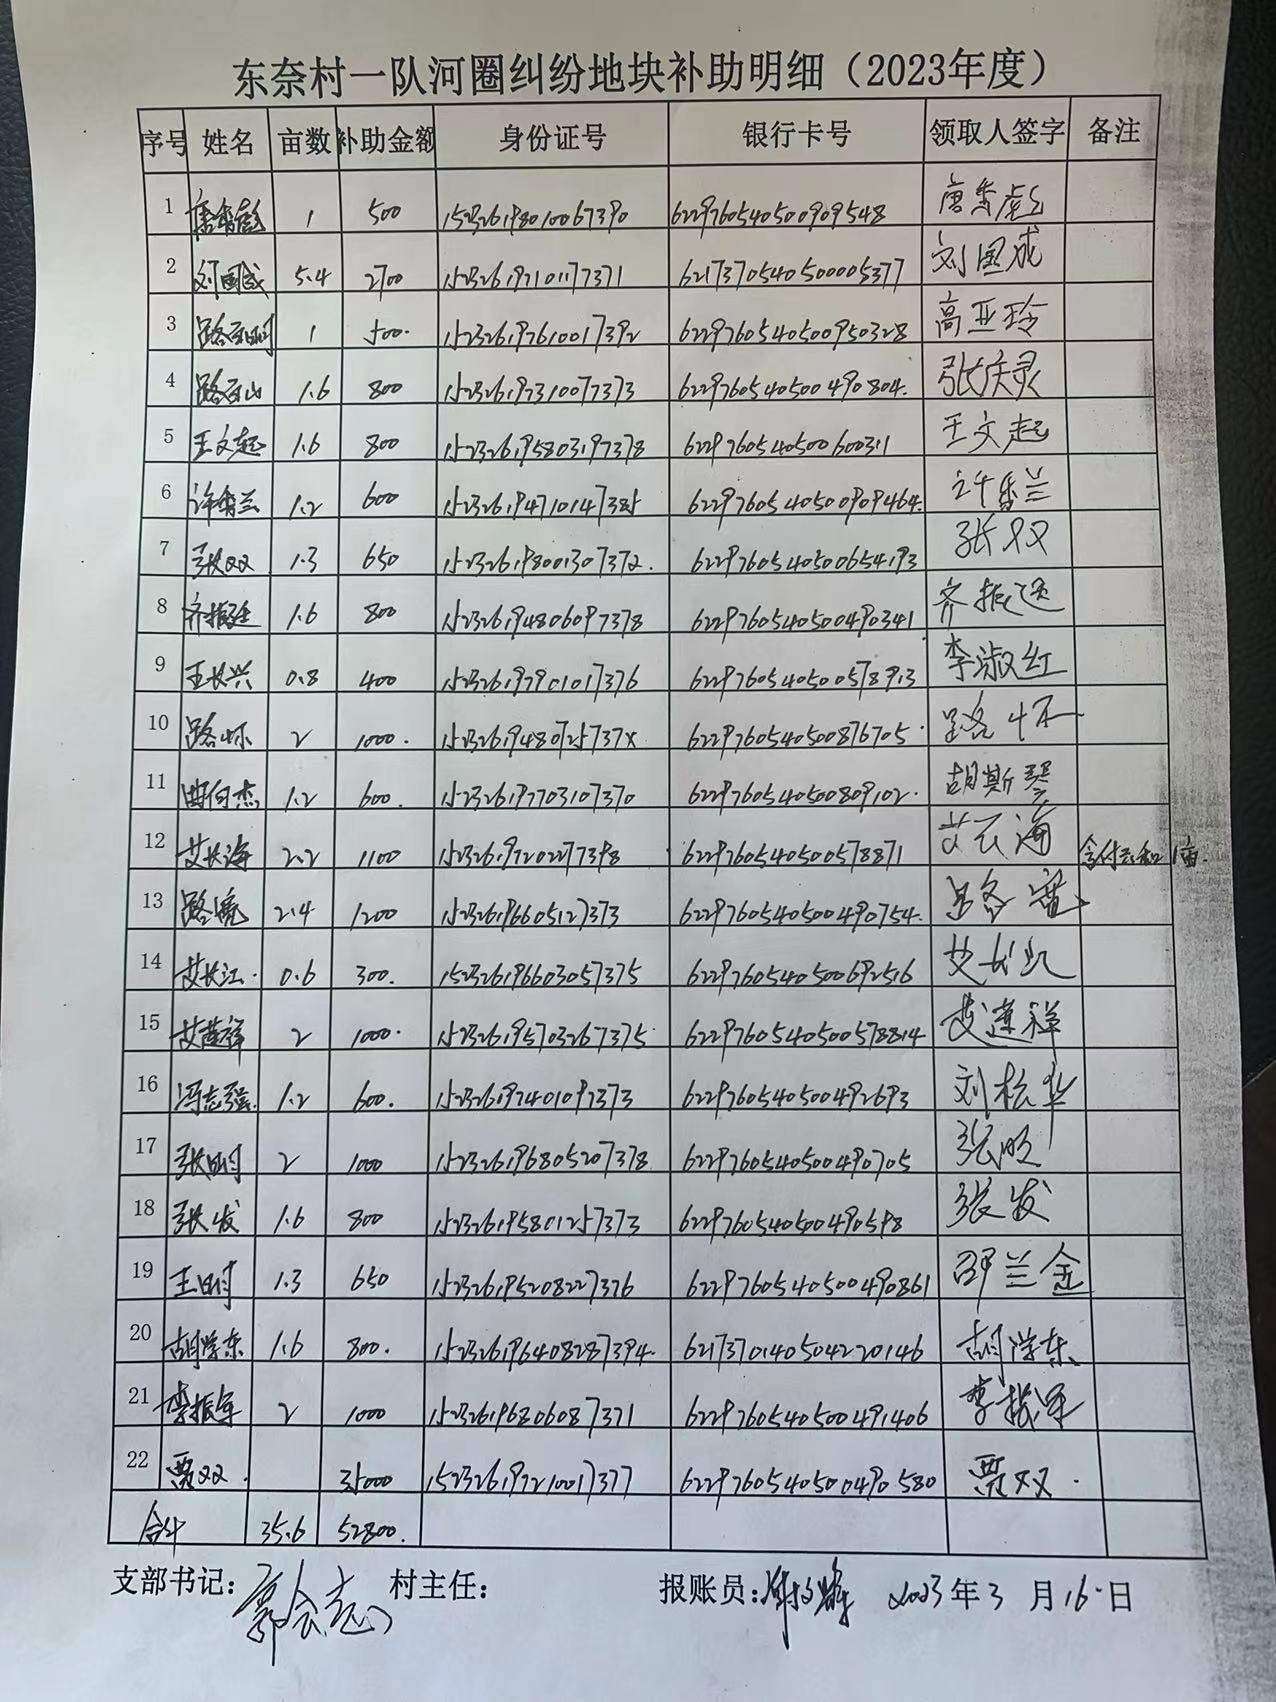 东奈村一队河圈纠纷地块补助明细（2023年度）
序号 姓名 亩数 补助金额 身份证号 银行卡号 领取人签字 备注
1 唐秀彪 1 500 152326198010067390 6229760540500909548 唐秀彪
2 刘国成 5.4 2700 152326197101177371 6217370540500005377 刘国成
3 路玉明 1 500. 152326197610017392 6229760540500950328 高亚玲
4 路玉山 1.6 800 152326197310077373 6229760540500490804. 张庆灵
5 王文起 1.6 800 152326195803197378 6229760540500600311 王文起
6 许秀兰 1.2 600 152326194710147385 6229760540500909464. 许秀兰
7 张双 1.3 650 152326198001307372. 6229760540500654193 张双
8 齐振廷 1.6 800 152326194806097378 6229760540500490341 齐振廷
9 王长兴 0.8 400 152326197901017376 6229760540500578913 李淑红
10 路怀 2 1000. 15232619480725737X 6229760540500876705. 路怀
11 曲向杰 1.2 600. 152326197703107370 6229760540500809102. 胡斯琴
12 艾长海 2.2 1100 152326197202277398 6229760540500578871 艾长海 1亩.
13 路 2.4 1200 152326196605127373 6229760540500490754. 路
14 艾长江. 0.6 300. 152326196603057375 6229760540500692516 艾长
15 艾莲祥 2 1000. 152326195703267375. 6229760540500578814 艾莲祥
16 冯志强. 1.2 600. 152326197401097373 6229760540500492693 刘松华
17 张明 2 1000 152326196805207378 6229760540500490705 张明
18 张发 1.6 800 152326195801257373 6229760540500490598 张发
19 王明 1.3 650 152326195208227376 6229760540500490861 邵兰金
20 胡学东 1.6 800. 152326196408287394. 6217370140504220146 胡学东
21 李振军 2 1000 152326196806087371 6229760540500491406 李振军
22 贾双. 35000 152326197210017377 6229760540500490580 贾双.
合计 35.6 52800.
支部书记: 郭会志 村主任: 报账员: 2023年3月16日